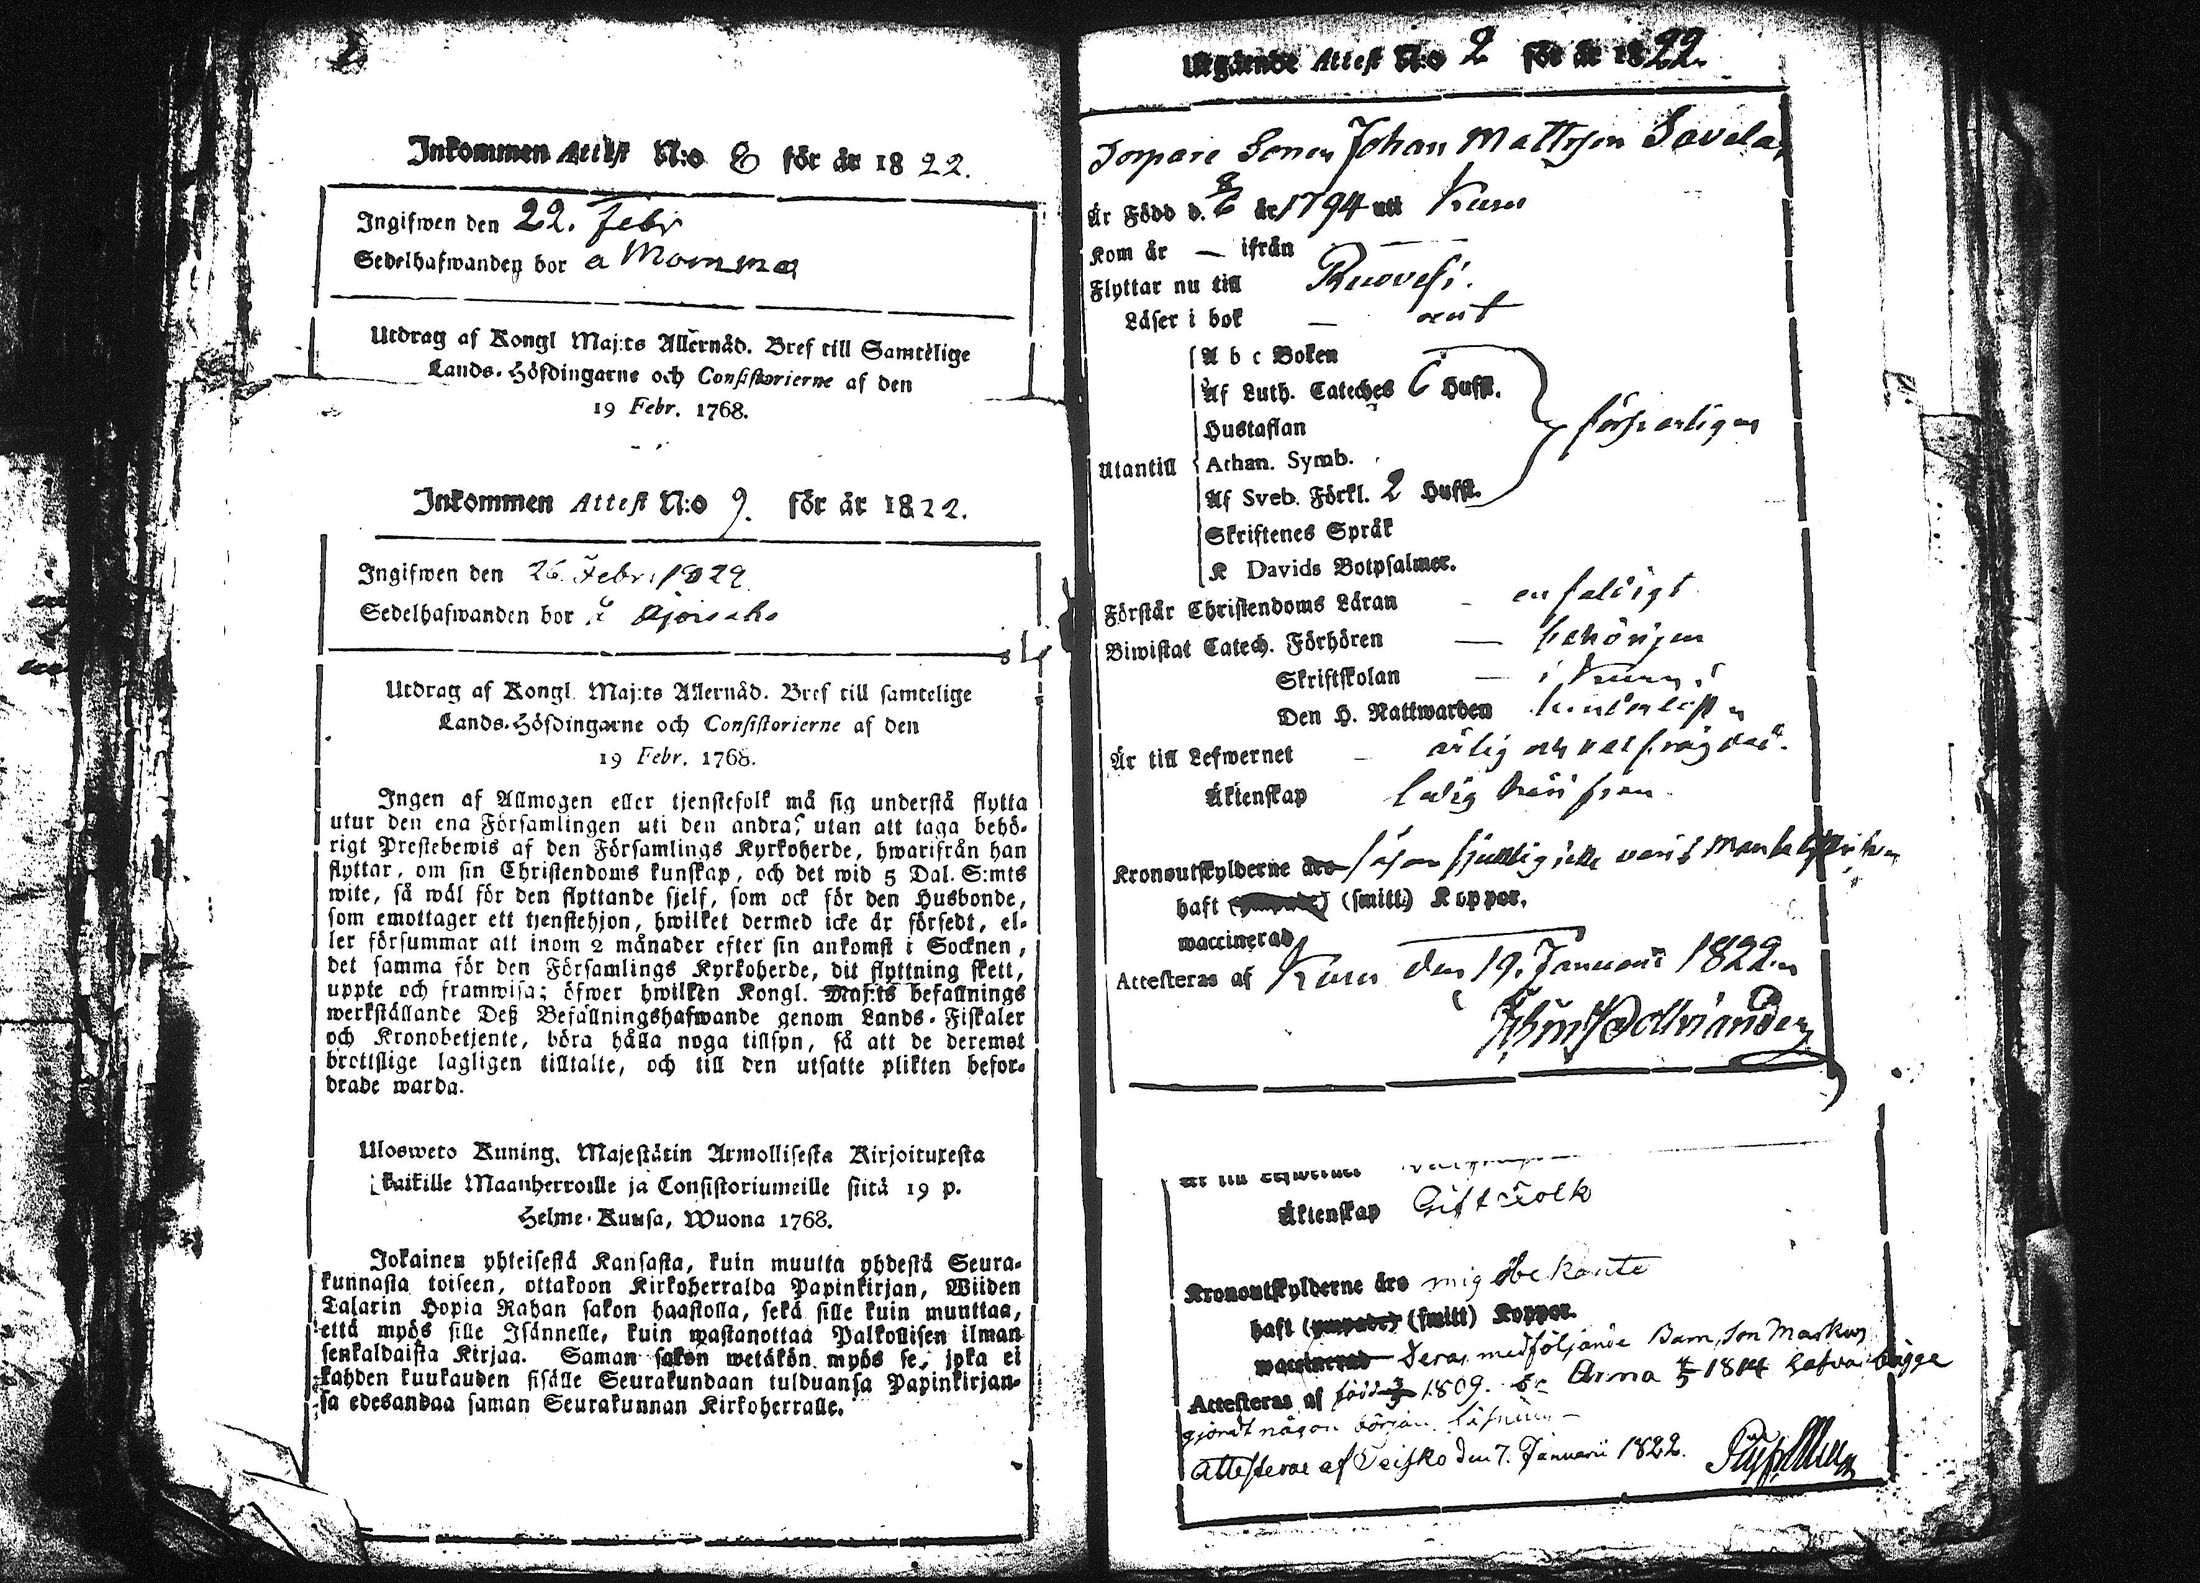 Inkommen Attest N:o 8 för år 1822.
Ingifwen den 22. Febr
Sedelhafwanden bor a Momma
Utdrag af Kongl Maj:ts Allernåd. Bref till Samtelige
Lands-Höfdingarne och Consistorierne af den
19 Febr. 1768.
Inkommen Attest N:o 9. för år 1822.
Ingifwen den 26. Febr. 1822
Sedelhafwanden bor
Utdrag af Kongl. Maj:ts Allernåd. Bref till samtelige
Lands-Höfdingarne och Consistorierne af den
19 Febr. 1768.
Ingen af Allmogen eller tjenstefolk må sig understå flytta
utur den ena Församlingen uti den andra, utan att taga behö-
rigt Prestebewis af den Församlings Kyrkoherde, hwarifrån han
flyttar, om sin Christendoms kunskap, och det wid 5 Dal. S:mts
wite, så wäl för den flyttande sjelf, som ock för den Husbonde,
som emottager ett tjenstehjon, hwilket dermed icke är försedt, el-
ler försummar att inom 2 månader efter sin ankomst i Socknen,
det samma för den Församlings Kyrkoherde, dit flyttning skett,
uppte och framwisa; öfwer hwilken Kongl. Maj:ts befallnings
werkställande Deß Befallningshafwande genom Lands-Fiskaler
och Kronobetjente, böra hålla noga tillsyn, så att de deremot
brottslige lagligen tilltalte, och till den utsatte plikten befor-
drade warda.
Ulosweto Kuning. Majestätin Armollisesta Kirjoituxesta
kaikille Maanherroille ja Consistoriumeille siitä 19 p.
Helme-Kuusa, Wuona 1768.
Jokainen yhteisestä Kansasta, kuin muutta yhdestä Seura-
kunnasta toiseen, ottakoon Kirkoherralda Papinkirjan, Wiiden
Talarin Hopia Rahan sakon haastolla, sekä sille kuin munttaa,
että myös sille Isännelle, kuin wastanottaa Palkollisen ilman
senkaldaista Kirjaa. Saman sakon wetäkön myös se, joka ei
kahden kuukauden sisälle Seurakundaan tulduansa Papinkirjan-
sa edesandaa saman Seurakunnan Kirkoherralle.
Utgående Attest N:o 2 för år 1822.
Torpare Sonen Johan Mattsson Savela,
Är Född d. år 1794 uti Kuru
Kom år — ifrån
Flyttar nu till Ruovesi.
Läser i bok — rent
A b c Boken
Af Luth. Cateches 6 Hufst.
Hustaflan
Utantill Athan. Symb.
Af Sveb. Förkl. 2 Hufst.
Skriftenes Språk
K Davids Botpsalmer.
försvarligen
Förstår Christendoms Läran - enfaldigt
Biwistat Catech. Förhören — behörigen
Skriftskolan — i Kuru
Den H. Nattwarden
Är till Lefwernet - ärlig och välfrägdad.
Äktenskap ledig härifrån
Kronoutskylderne äro
haft (ympade) (smitt.) Koppor.
waccinerad
Attesteras af Kuru den 19. Januarii 1822.
Är till Lefwernet
Äktenskap Gift Folk
Kronoutskylderne äro mig obekante
haft (ympade) (smitt) Koppor.
waccinerad Deras medföljande Barn, Son Markus
Attesteras af född 1809. Anna 1814 hafva bägge
gjordt någon början
Attesteras af Teisko den 7. Januarii 1822.